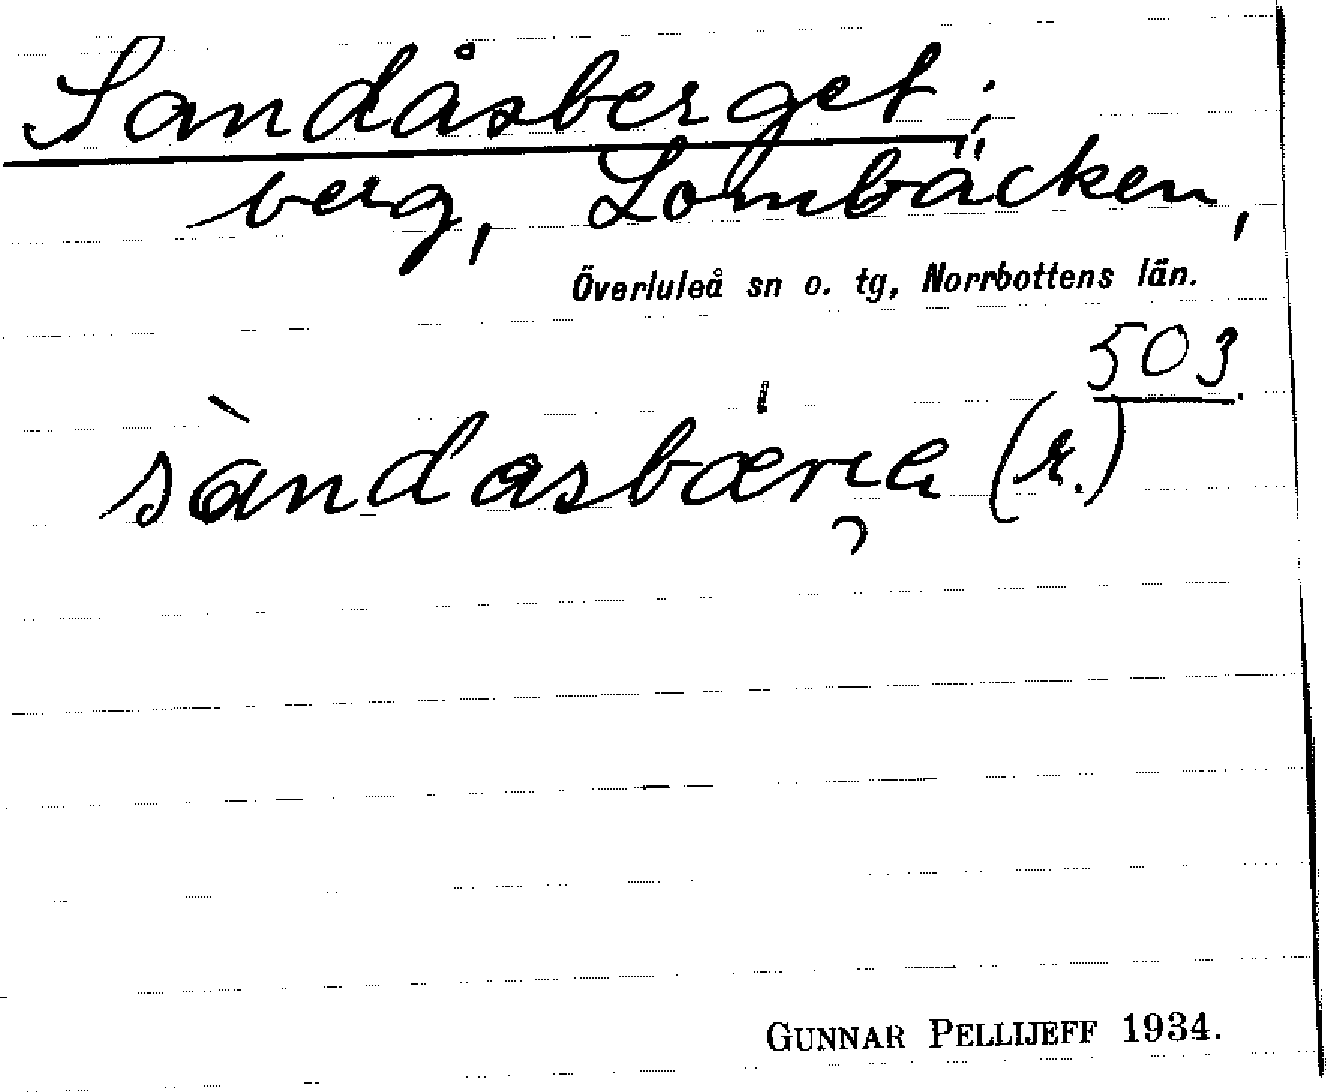 Sandåsberget;
berg, Lombäcken,
Överluleå sn o. tg, Norrbottens län.
503
(r.)
GUNNAR PELLIJEFF 1934.